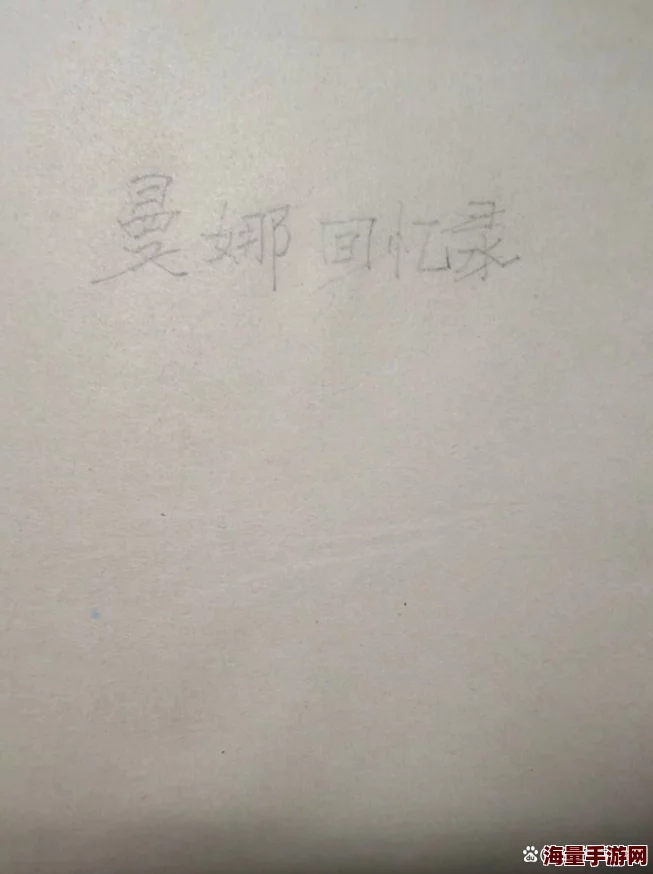 曼娜回忆录
海量手游网